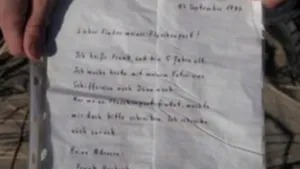 September 1987
Lieber Finder meiner Flaschenpost!
Ich heiße Frank und bin 5 Jahre alt.
Ich mache heute mit meinem Vater eine
Schiffsreise nach Dänemark.
meine Flaschenpost findet, möchte
mir doch bitte schreiben. Ich schreibe
auch zurück
Meine Adresse:
Frank